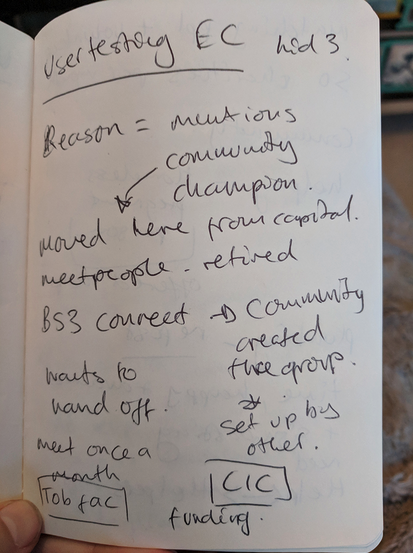 Usertesting EC hid 3.
Reason = mentions
community
champion.
moved here from capital.
meet people - retired
BS3 connect → Community
created
the group.
wants to
hand off.
set up by
other.
meet once a
month
Tob fac
CIC
funding.